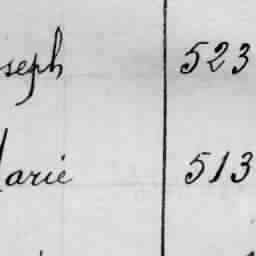 seph 523
arie 513